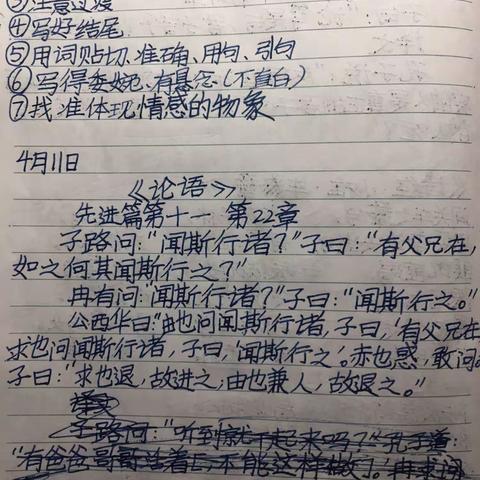 ③注意过渡
④写好结尾
⑤用词贴切、准确、用句、引句
⑥写得委婉、有悬念(不直白)
⑦找准体现情感的物象
4月11日
《论语》
先进篇第十一 第22章
子路问:“闻斯行诸?”子曰:“有父兄在,
如之何其闻斯行之?”
冉有问:“闻斯行诸?”子曰:“闻斯行之。”
公西华曰:“由也问闻斯行诸,子曰,‘有父兄在
求也问闻斯行诸,子曰,‘闻斯行之’。赤也惑,敢问。
子曰:“求也退,故进之,由也兼人,故退之。”
子路问:“听到就干起来吗?”孔子道:
“有爸爸哥哥活着,不能这样做。”冉求问